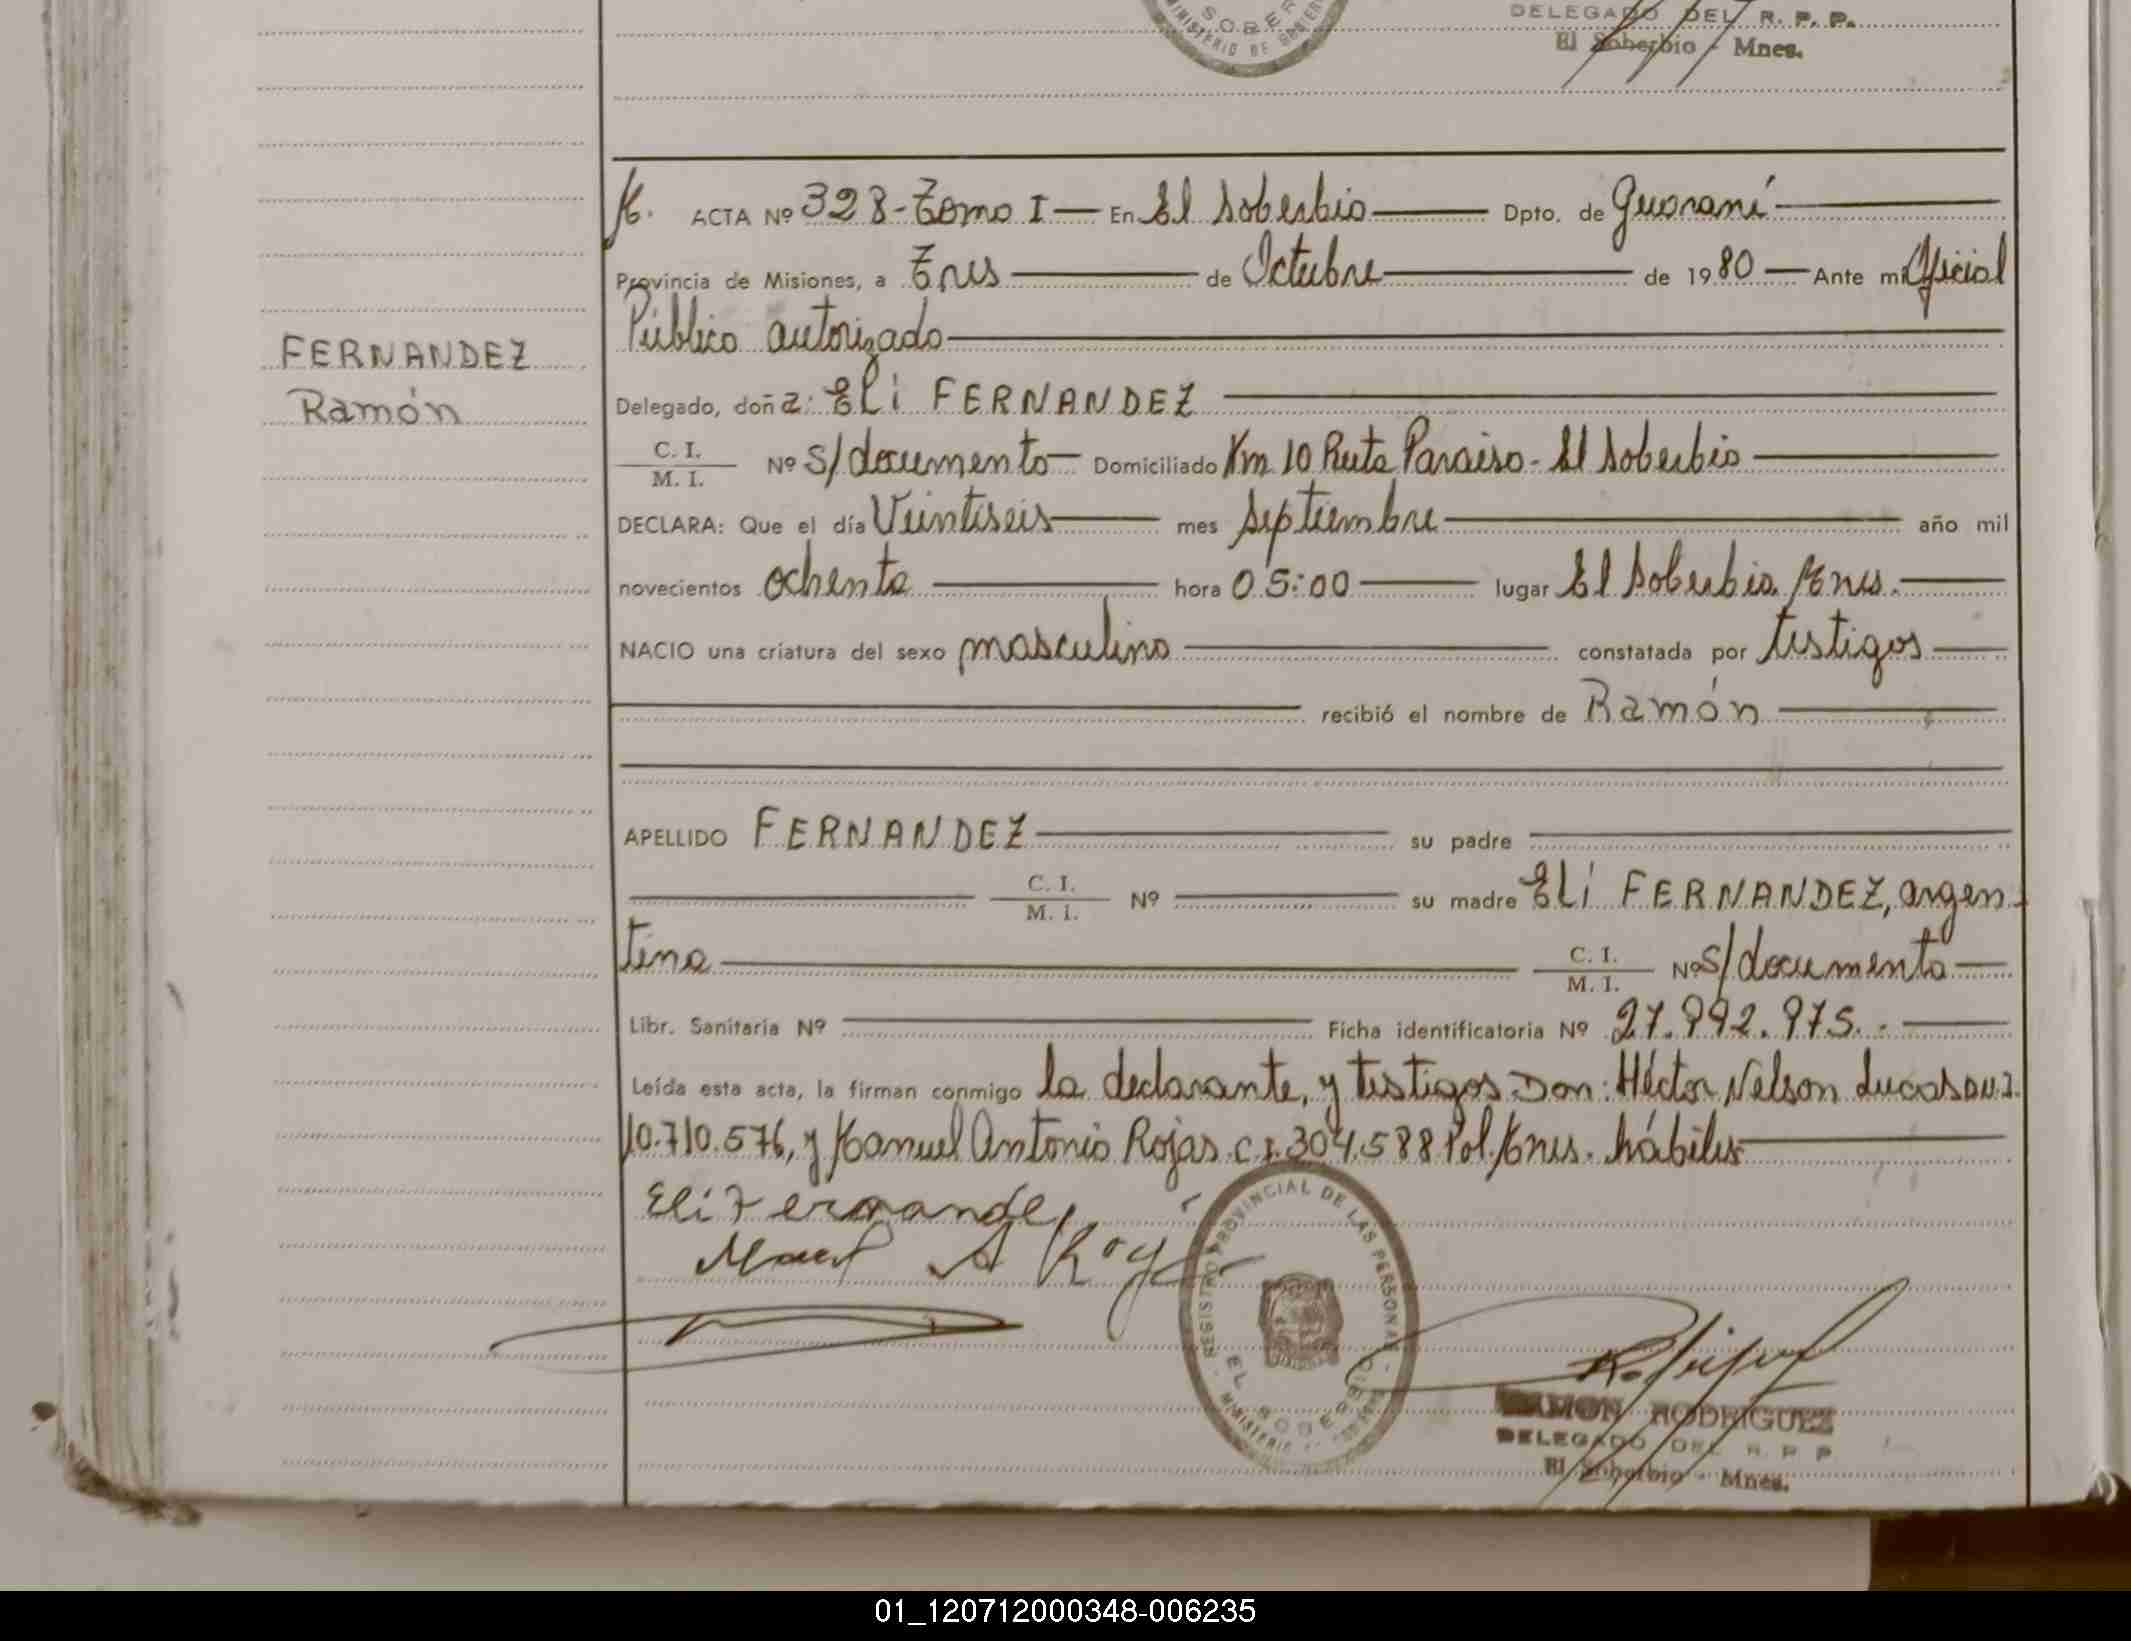 SOBER
MINISTERIO DE GOBIER
DELEGADO DEL R. P. P.
El Soberbio - Mnes.
M. ACTA Nº 328-Tomo I En El Soberbio Dpto. de Guaraní
Provincia de Misiones, a Tres de Octubre de 1980 Ante mi Oficial
Público autorizado
FERNANDEZ
Ramón
Delegado, doña: Elí FERNANDEZ
C. I. / M. I. Nº s/documento Domiciliado Km 10 Ruta Paraiso - El Soberbio
DECLARA: Que el día Veintiseis mes Septiembre año mil
novecientos ochenta hora 05:00 lugar El Soberbio, Mnes.
NACIO una criatura del sexo masculino constatada por testigos
recibió el nombre de Ramón
APELLIDO FERNANDEZ su padre
C. I. / M. I. Nº su madre Elí FERNANDEZ, argen-
tina C. I. / M. I. Nº s/documento
Libr. Sanitaria Nº Ficha identificatoria Nº 27.992.975.-
Leída esta acta, la firman conmigo la declarante, y testigos Don: Héctor Nelson Lucas D.N.I.
10.710.576, y Manuel Antonio Rojas C.I. 304.588 Pol. Mnes. hábiles
Elí Fernande
A Roja
REGISTRO PROVINCIAL DE LAS PERSONAS
EL SOBERBIO
MINISTERIO
RAMON RODRIGUEZ
DELEGADO DEL R P P
El Soberbio - Mnes.
01_120712000348-006235